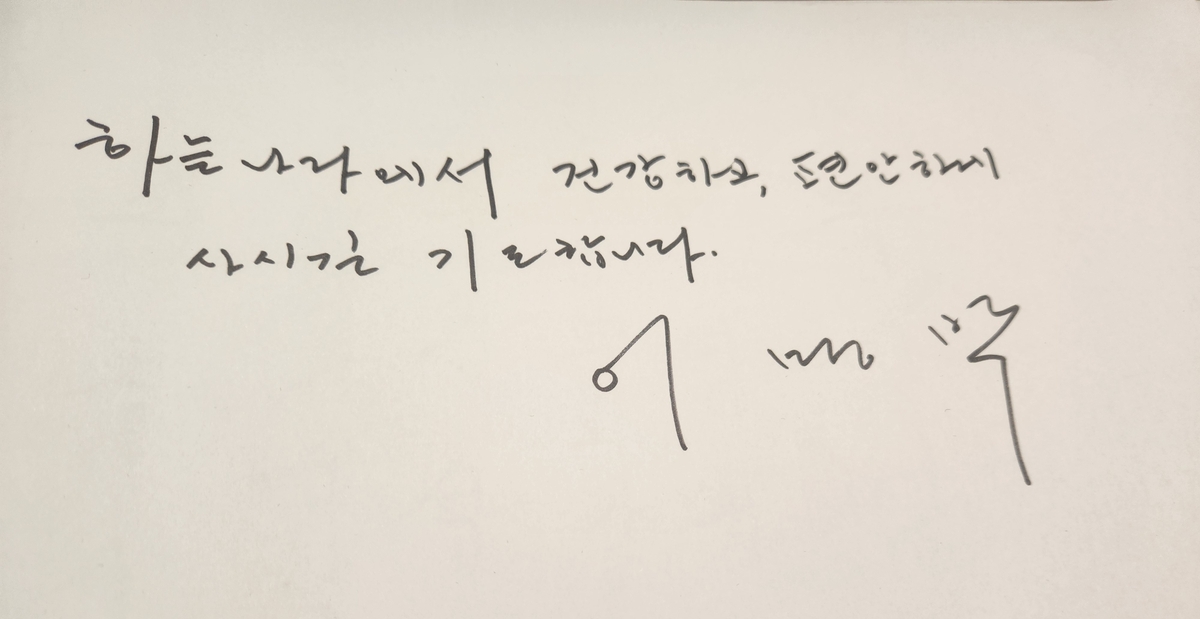 하늘나라에서 건강하고, 편안하게
사시길 기도합니다.
이 명 박